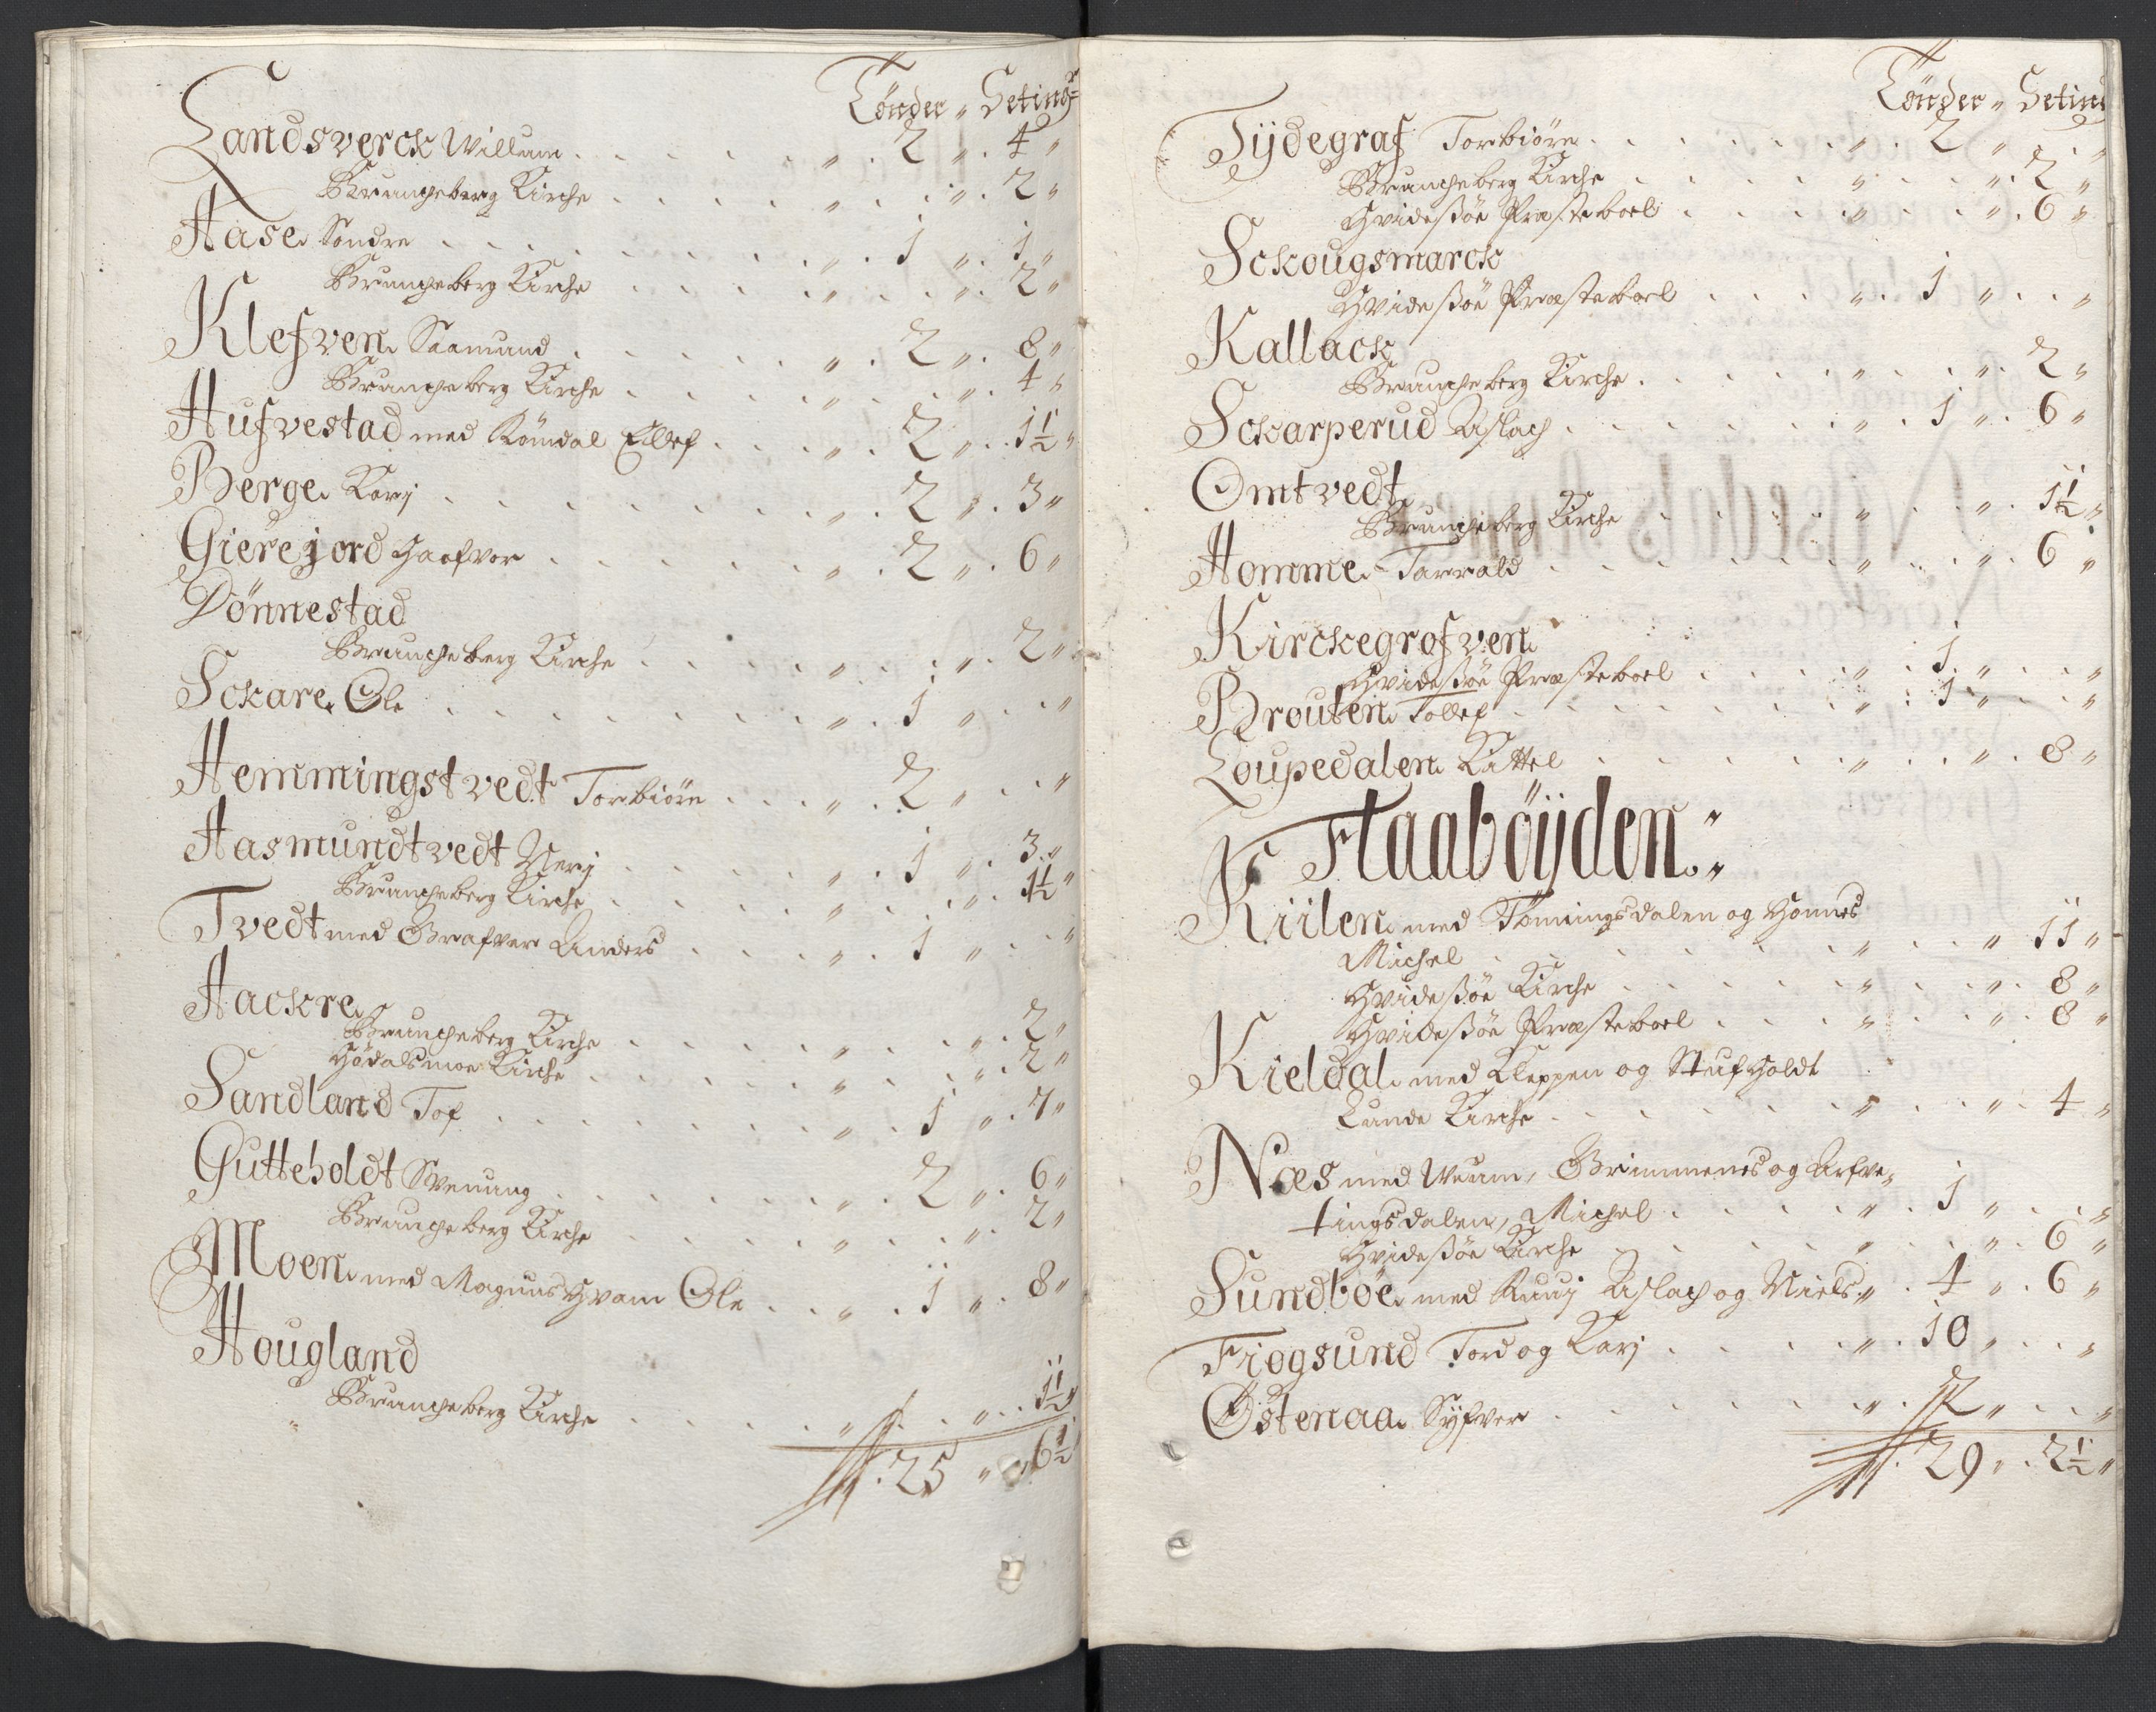 Tönder „ Seting
Landsverck Willum . . . „ . 2 „ . 4 „
Bruncheberg Kirche . . . „ . . „ . 2 „
Aase Sondre . . . „ . 1 „ . 1 „
Bruncheberg Kirche . . . „ . . „ . 2 „
Klefven Saamund . . . „ . 2 „ . 8 „
Bruncheberg Kirche . . . „ . . „ . 4 „
Hufvestad med Römdal Ellef . . . „ . 2 „ . 1½ „
Berge Karj . . . „ . 2 „ . 3 „
Gierejord Haafvor . . . „ . 2 „ . 6 „
Dönnestad
Bruncheberg Kirche . . . „ . . „ . 2 „
Sckare Ole . . . „ . 1 „ . . „
Hemmingstvedt Torbiörn . . . „ . 2 „ . . „
Aasmundtvedt Nerj . . . „ . 1 „ . 3 „
Bruncheberg Kirche . . . „ . . „ . 1½ „
Tvedt med Grafver Anders . . . „ . 1 „ . . „
Aackre
Bruncheberg Kirche . . . „ . . „ . 2 „
Hödalsmoe Kirche . . . „ . . „ . 2 „
Sandland Tof . . . „ . 1 „ . 7 „
Gutteholdt Svenung . . . „ . 2 „ . 6 „
Bruncheberg Kirche . . . „ . . „ . 2 „
Moen med Magnus Hvam Ole . . . „ . 1 „ . 8 „
Hougland
Bruncheberg Kirche . . . „ . . „ . 1½ „
25 „ 6½
Tönder „ Seting
Tÿdegraf Torbiörn . . . „ . 2 „ . . „
Bruncheberg Kirche . . . „ . . „ . 2 „
Hvidesßöe Præsteboel . . . „ . . „ . 6 „
Sckougsmarck
Hvidesßöe Præsteboel . . . „ . 1 „ . . „
Kallack
Bruncheberg Kirche . . . „ . . „ . 2 „
Sckarperud Aslach . . . „ . 1 „ . 6 „
Omtvedt
Bruncheberg Kirche . . . „ . . „ . 1½ „
Homme Tarrald . . . „ . . „ . 6 „
Kirckegrofven
Hvidesßöe Præsteboel . . . „ . 1 „ . . „
Brouten Tollef . . . „ . 1 „ . . „
Loupedalen Kittel . . . „ . . „ . 8 „
Flaaböÿden
Kiilen med Tömingsdalen og Honnes
Michel . . . „ . . „ 11 „
Hvidesßöe Kirche . . . „ . . „ . 8 „
Hvidesßöe Præsteboel . . . „ . . „ . 8 „
Kieldal med Kleppen og Stufholdt
Lunde Kirche . . . „ . . „ . 4 „
Næs med Wuum, Grimmenes og Arfve„
tingsdalen, Michel . . . „ . 1 „ . . „
Hvidesßöe Kirche . . . „ . . „ . 6 „
Sundböe med Ruuj Aslach og Niels „ . 4 „ . 6 „
Friogsund Tord og Karj . . . „ . 10 „ . . „
Östenaa Syfver . . . „ . 2 „ . . „
29 „ . 2½ „